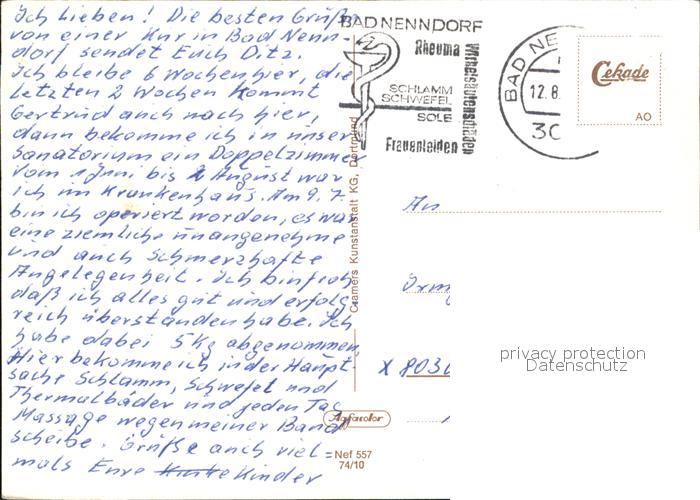 Ich lieben! Die besten Grüße
von einer Kur in Bad Nenn-
dorf sendet Euch Ditz.
Ich bleibe 6 Wochen hier, die
letzten 2 Wochen kommt
Gertrud auch noch hier,
dann bekomme ich in unser
Sanatorium ein Doppelzimmer
Vom 1 Juni bis 2 August war
ich im Krankenhaus. Am 9. 7.
bin ich operiert worden, es war
eine ziemliche unangenehme
und auch schmerzhafte
Angelegenheit. Ich bin froh
daß ich alles gut und erfolg-
reich überstanden habe. Ich
habe dabei 5 Kg abgenommen,
Hier bekomme ich in der Haupt-
sache Schlamm, Schwefel und
Thermalbäder und jeden Tag
Massage wegen meiner Band
scheibe. Grüße auch viel=
mals Eure Kinder
Cramers Kunstanstalt KG, Dortmund
Agfacolor
Nef 557
74/10
BAD NENNDORF
Rheuma
Wirbelsäulenschäden
SCHLAMM
SCHWEFEL
SOLE
Frauenleiden
BAD NE
12.8.
30
Cekade
AO
An
X 803
privacy protection
Datenschutz